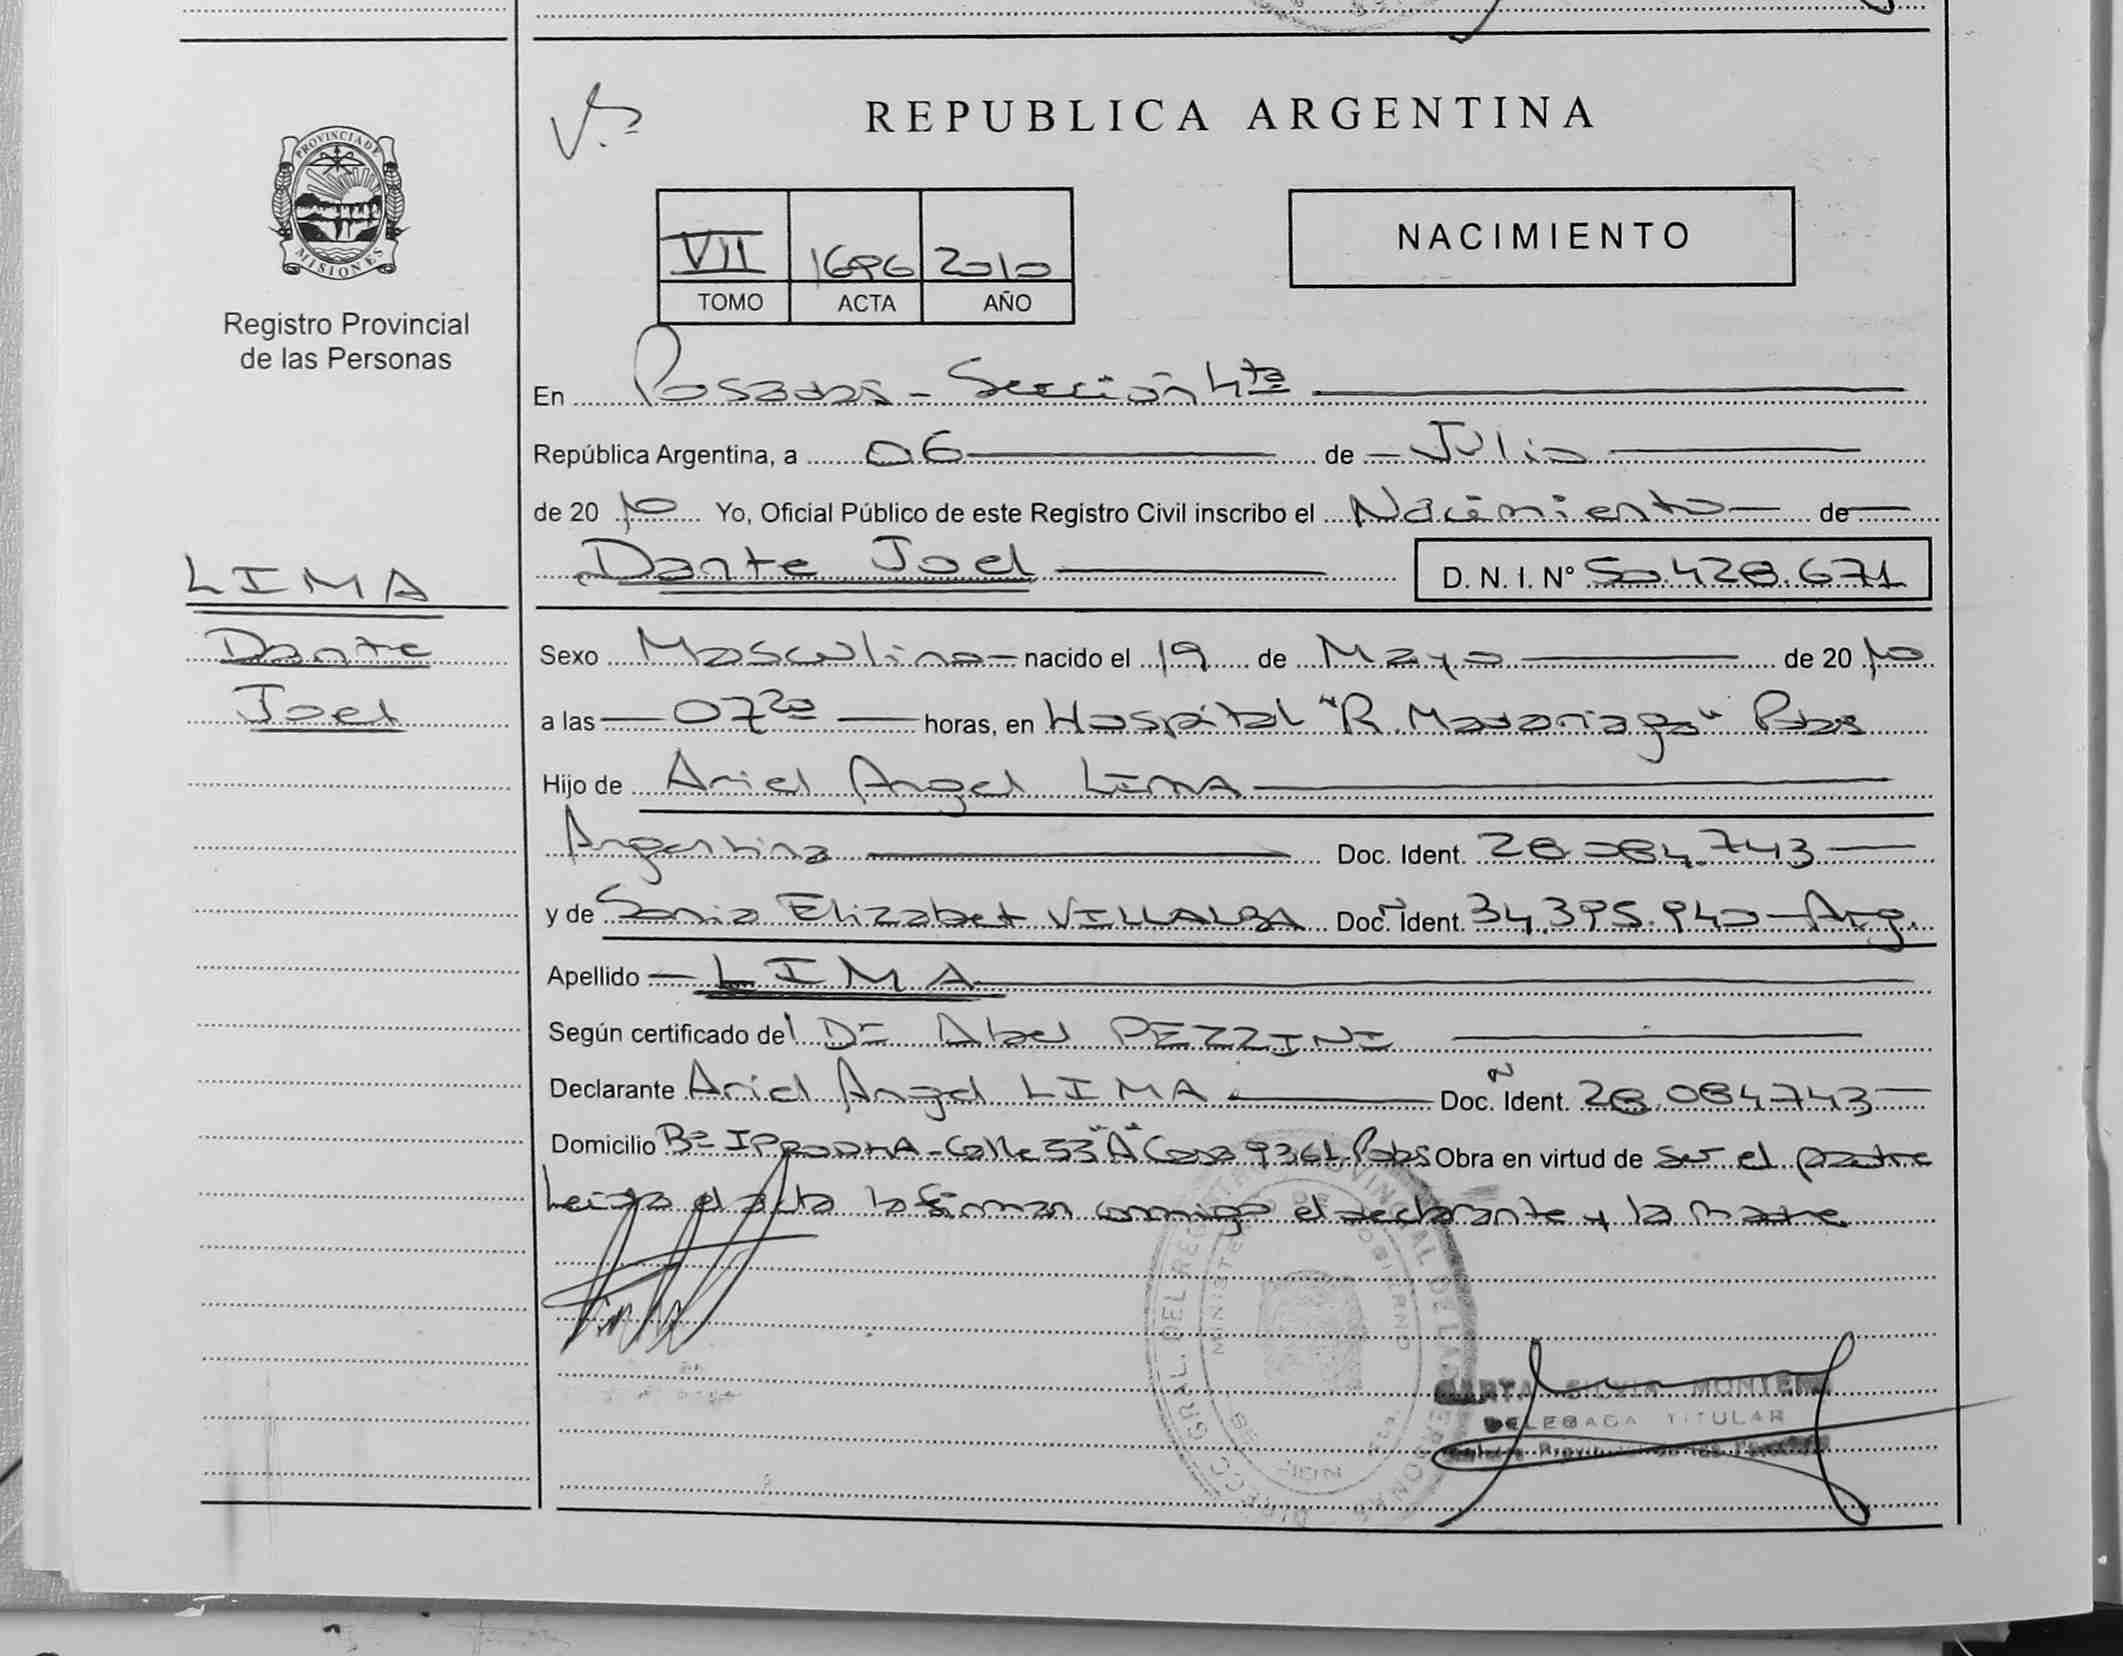 REPUBLICA ARGENTINA
PROVINCIA DE
MISIONES
Registro Provincial
de las Personas
NACIMIENTO
VII 1696 2010
TOMO ACTA AÑO
En Posadas - Sección 4ta
República Argentina, a 06 de Julio
de 2010 Yo, Oficial Público de este Registro Civil inscribo el Nacimiento de
Dante Joel D. N. I. N° 50.428.671
LIMA
Dante
Joel
Sexo Masculino nacido el 19 de Mayo de 2010
a las 07 20 horas, en Hospital "R. Madariaga" Pdas
Hijo de Ariel Angel LIMA
Argentina Doc. Ident. 28.084.743
y de Sonia Elizabet VILLALBA Doc. Ident. 34.395.940 - Arg.
Apellido LIMA
Según certificado del Dr Abel PEZZINI
Declarante Ariel Angel LIMA Doc. Ident. 28.084.743
Domicilio B° IPRODHA - Calle 53 "A" Casa 9361 Pdas Obra en virtud de ser el padre
Leida el acta la firman conmigo el declarante y la madre
MINISTERIO DE GOBIERNO
DELEGADA TITULAR